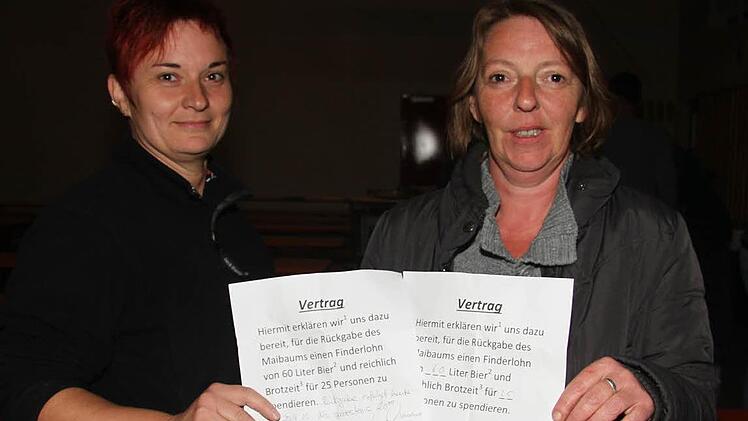 Vertrag
Hiermit erklären wir¹ uns dazu
bereit, für die Rückgabe des
Maibaums einen Finderlohn
von 60 Liter Bier² und reichlich
Brotzeit³ für 25 Personen zu
spendieren.
Vertrag
Hiermit erklären wir¹ uns dazu
bereit, für die Rückgabe des
Maibaums einen Finderlohn
60 Liter Bier² und
reichlich Brotzeit³ für 25
Personen zu spendieren.